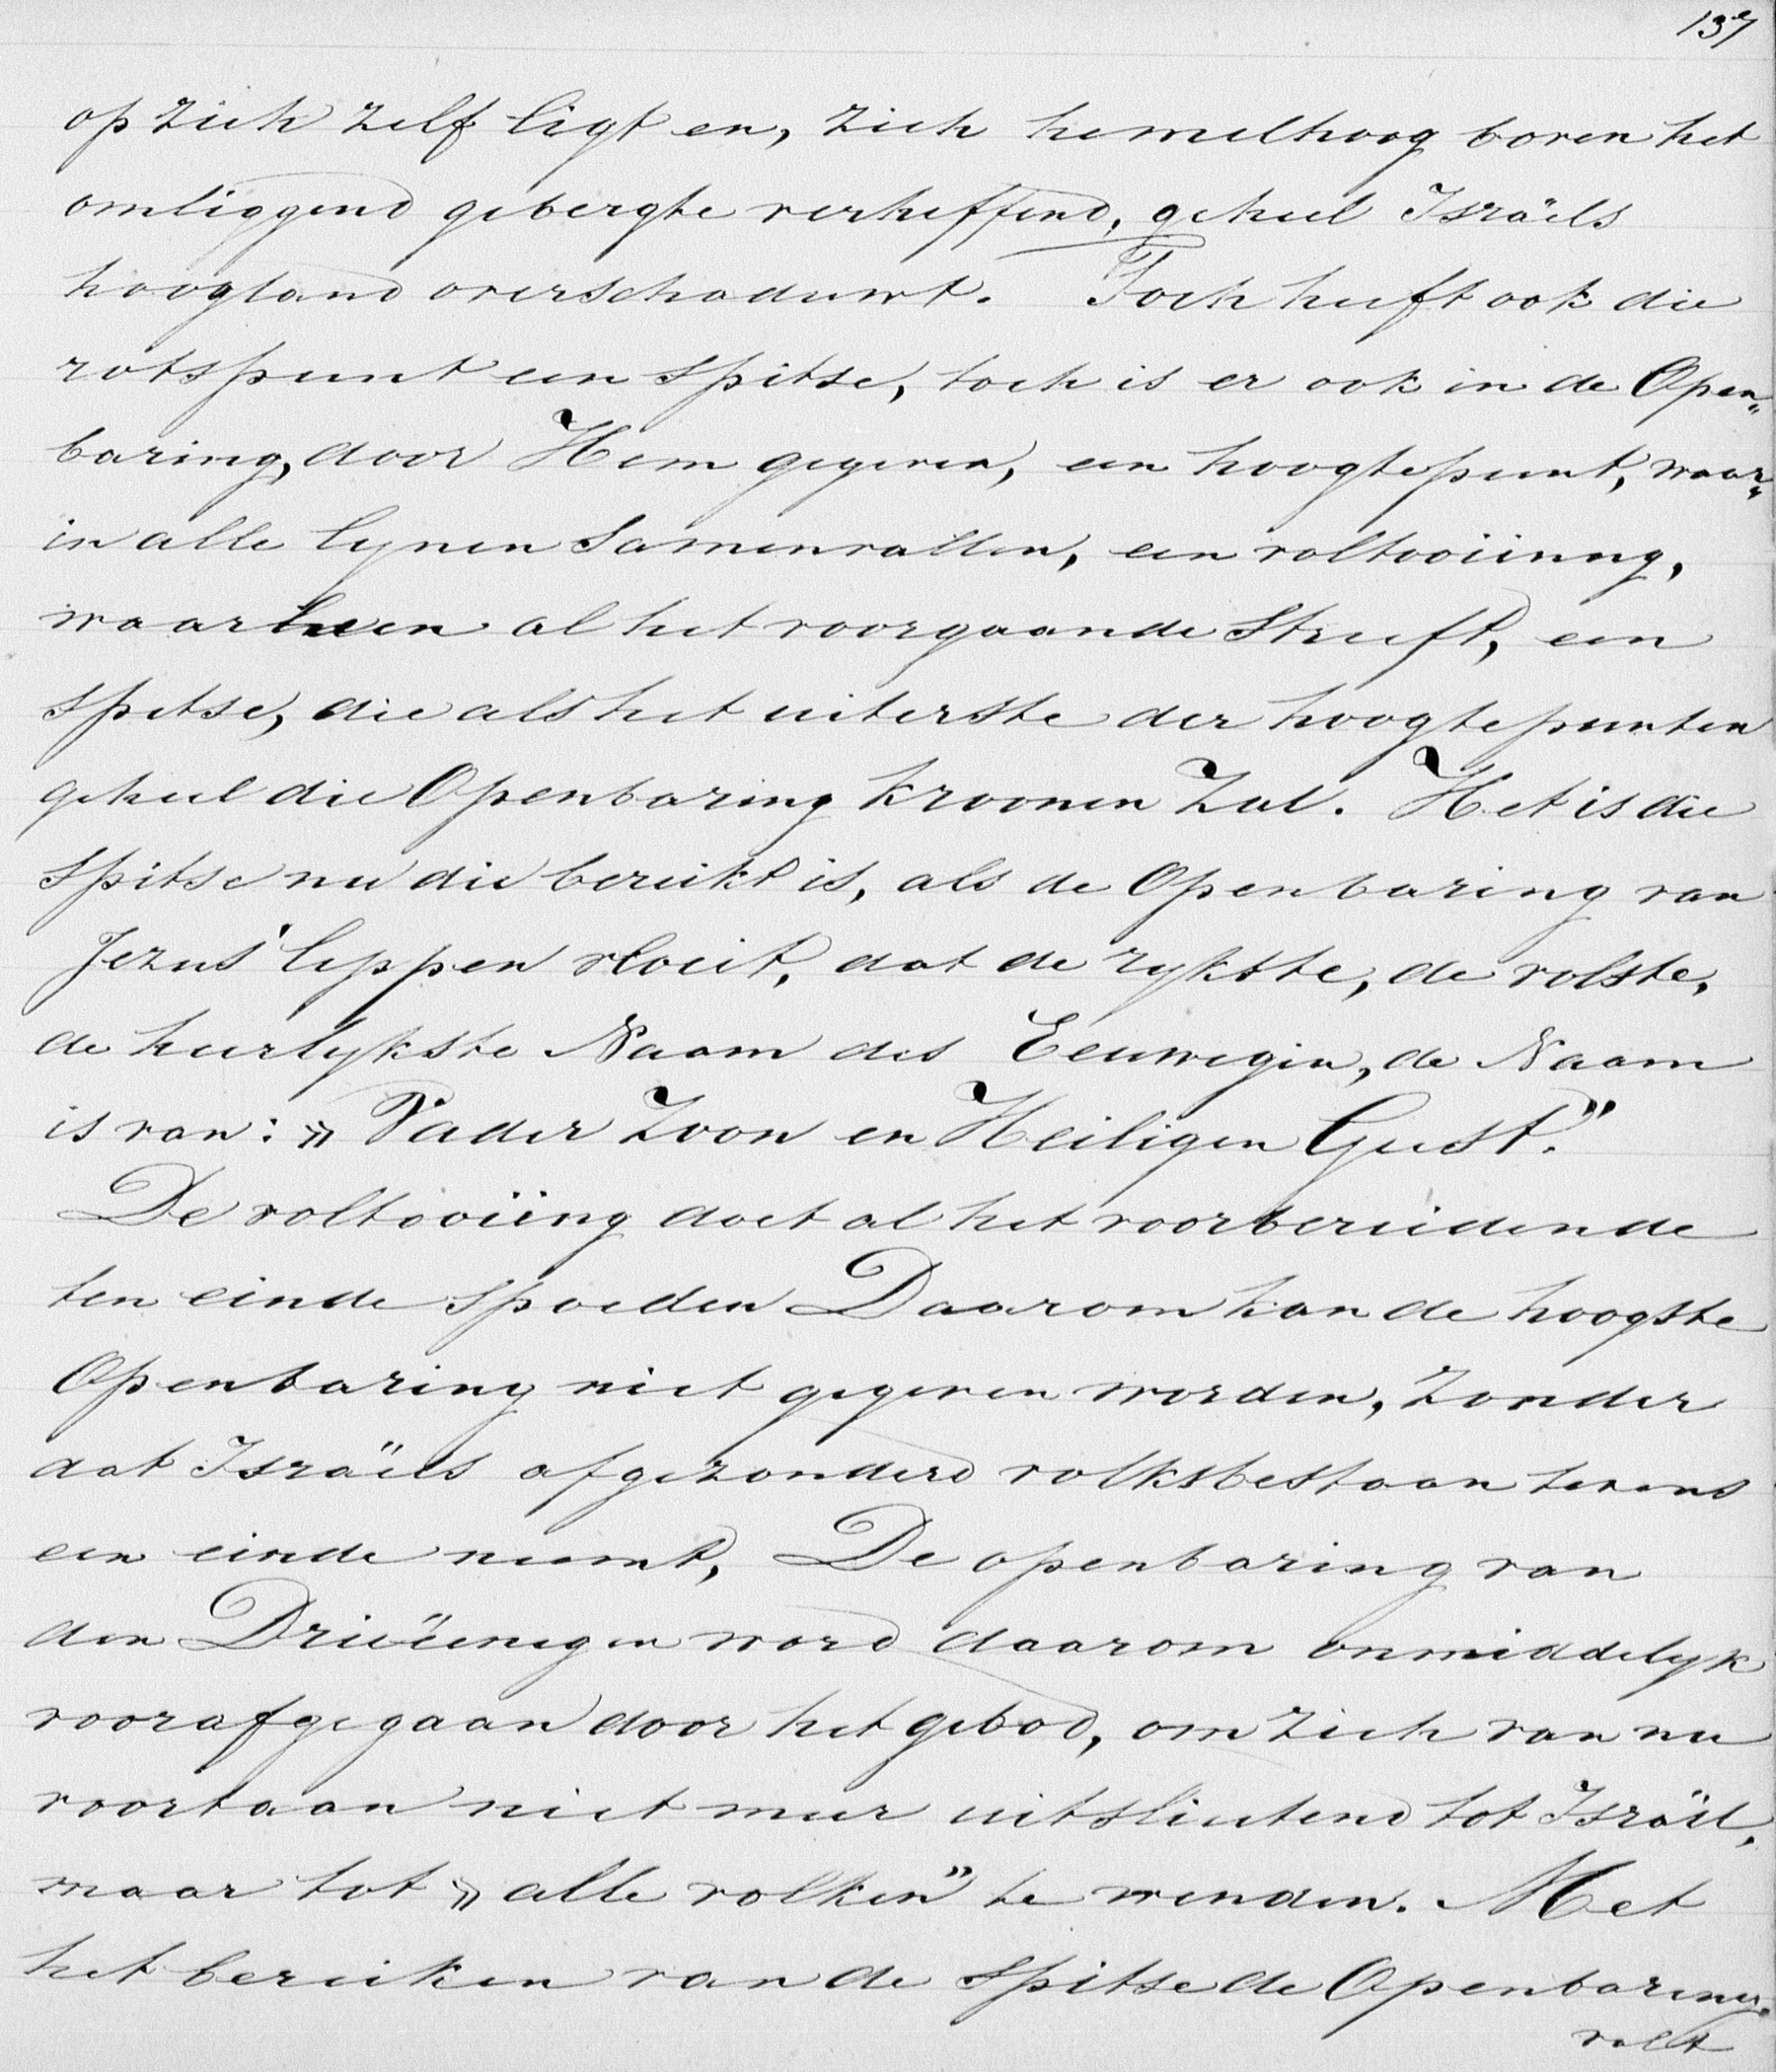 137
op zich zelf ligt en, zich hemelhoog boven het
omliggend gebergte verheffend, geheel Israëls
hoogland overschaduwt. Toch heeft ook die
rotspunt een spitse, toch is er ook in de Open„
baring, door Hem gegeven, een hoogtepunt, waar„
in alle lynen samenvallen, een voltooiinng,
waarheen al het voorgaande streeft, een
spitse, die als het uiterste der hoogtepunten
geheel die Openbaring kroonen zal. Het is die
spitse nu die bereikt is, als de Openbaring van
Jezus' lippen vloeit, dat de rykste, de volste,
de heerlykste Naam des Eeuwigen, de Naam
is van: „Vader Zoon en Heiligen Geest."
De voltooiïng doet al het voorbereidende
ten einde spoeden Daarom kan de hoogste
Openbaring niet gegeven worden, zonder
dat Israëls afgezonderd volksbestaan tevens
een einde neemt, De openbaring van
den Drieëenigen word daarom onmiddelyk
voorafgegaan door het gebod, om zich van nu
voortaan niet meer uitsluitend tot Israël,
maar tot „alle volken" te wenden. Met
het bereiken van de spitse de Openbaring.
valt